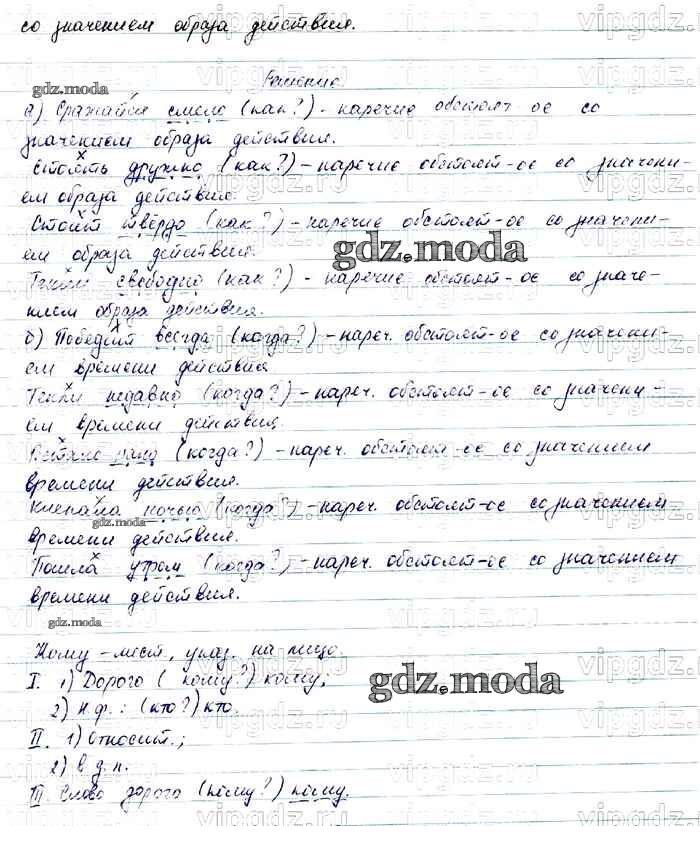 со значением образа действия.
Решение.
gdz.moda
а) Сражайся смело (как?) - наречие обстоят-ое со
значением образа действия.
Стоять дружно (как?) - наречие обстоят-ое со значени-
ем образа действия.
Стоит твёрдо (как?) - наречие обстоят-ое со значени-
ем образа действия.
gdz.moda
Текли свободно (как?) - наречие обстоят-ое со значе-
нием образа действия.
б) Победит всегда (когда?) - нареч. обстоят-ое со значени-
ем времени действия
Текли недавно (когда?) - нареч. обстоят-ое со значени-
ем времени действия.
Встано рано (когда?) - нареч. обстоят-ое со значением
времени действия.
Клепала ночью (когда?) - нареч. обстоят-ое со значением
gdz.moda
времени действия.
Пошла утром (когда?) - нареч. обстоят-ое со значением
времени действия.
gdz.moda
Кому - мест., указ. на лицо.
I. 1) Дорого (кому?) кому;
gdz.moda
2) н.ф.: (кто?) кто.
II. 1) Относит.;
2) в д.п.
III. Слово дорого (кому?) кому.
vipgdz.ru